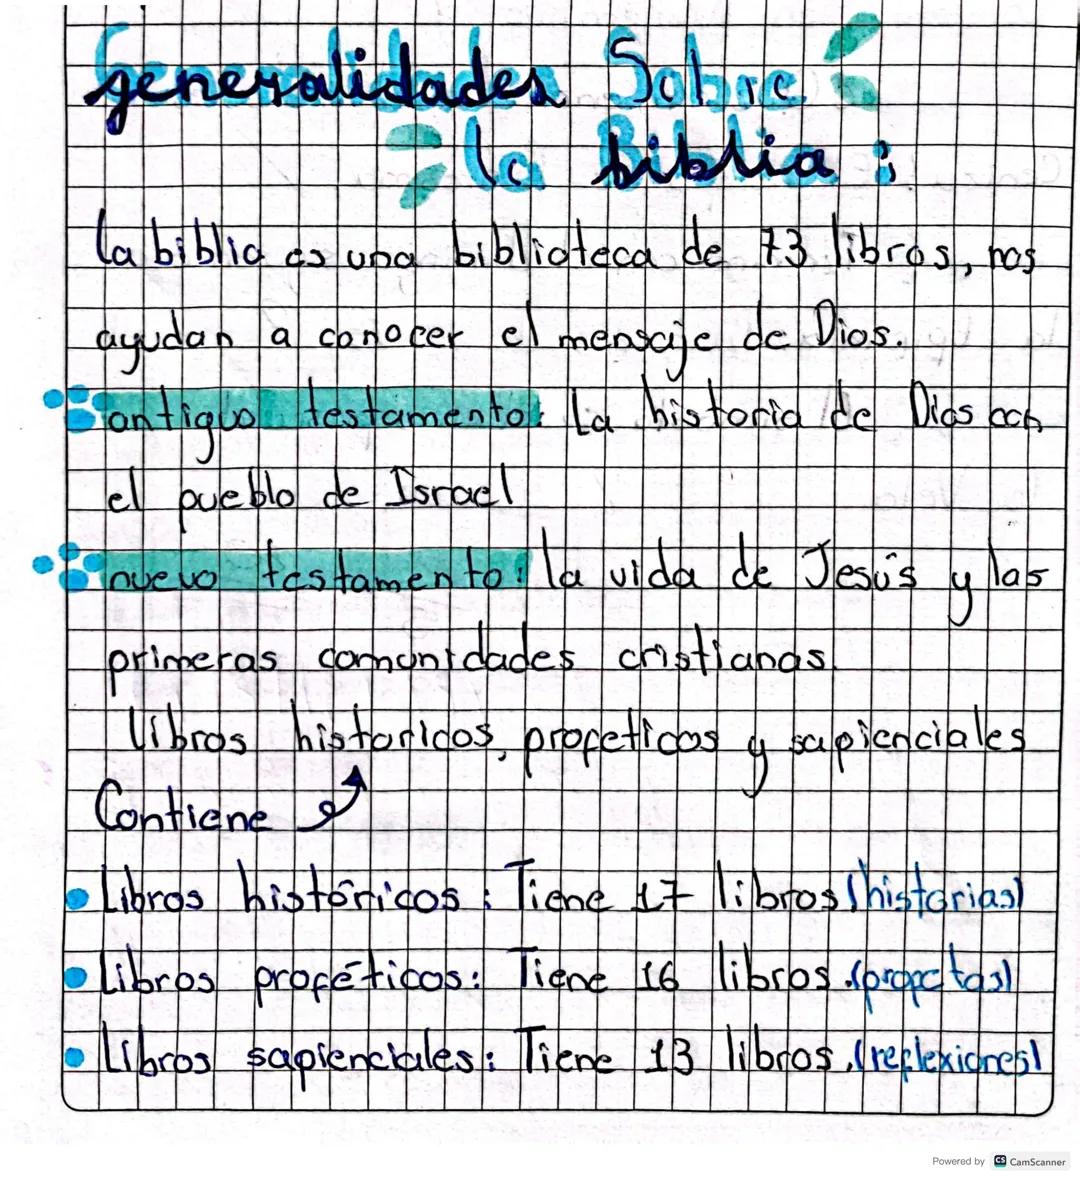 generalidades Sobre
la Biblia :
la biblia es una biblioteca de 73 libros, nos
ayudan a conocer el mensaje de Dios.
antiguo testamento: La historia de Dios con
el pueblo de Israel
nuevo testamento: la vida de Jesús y las
primeras comunidades cristianas.
libros historicos, profeticos y sapienciales
Contiene
Libros históricos : Tiene 17 libros (historias)
Libros proféticos: Tiene 16 libros. (profetas)
Libros sapienciales: Tiene 13 libros. (reflexiones)
Powered by CS CamScanner